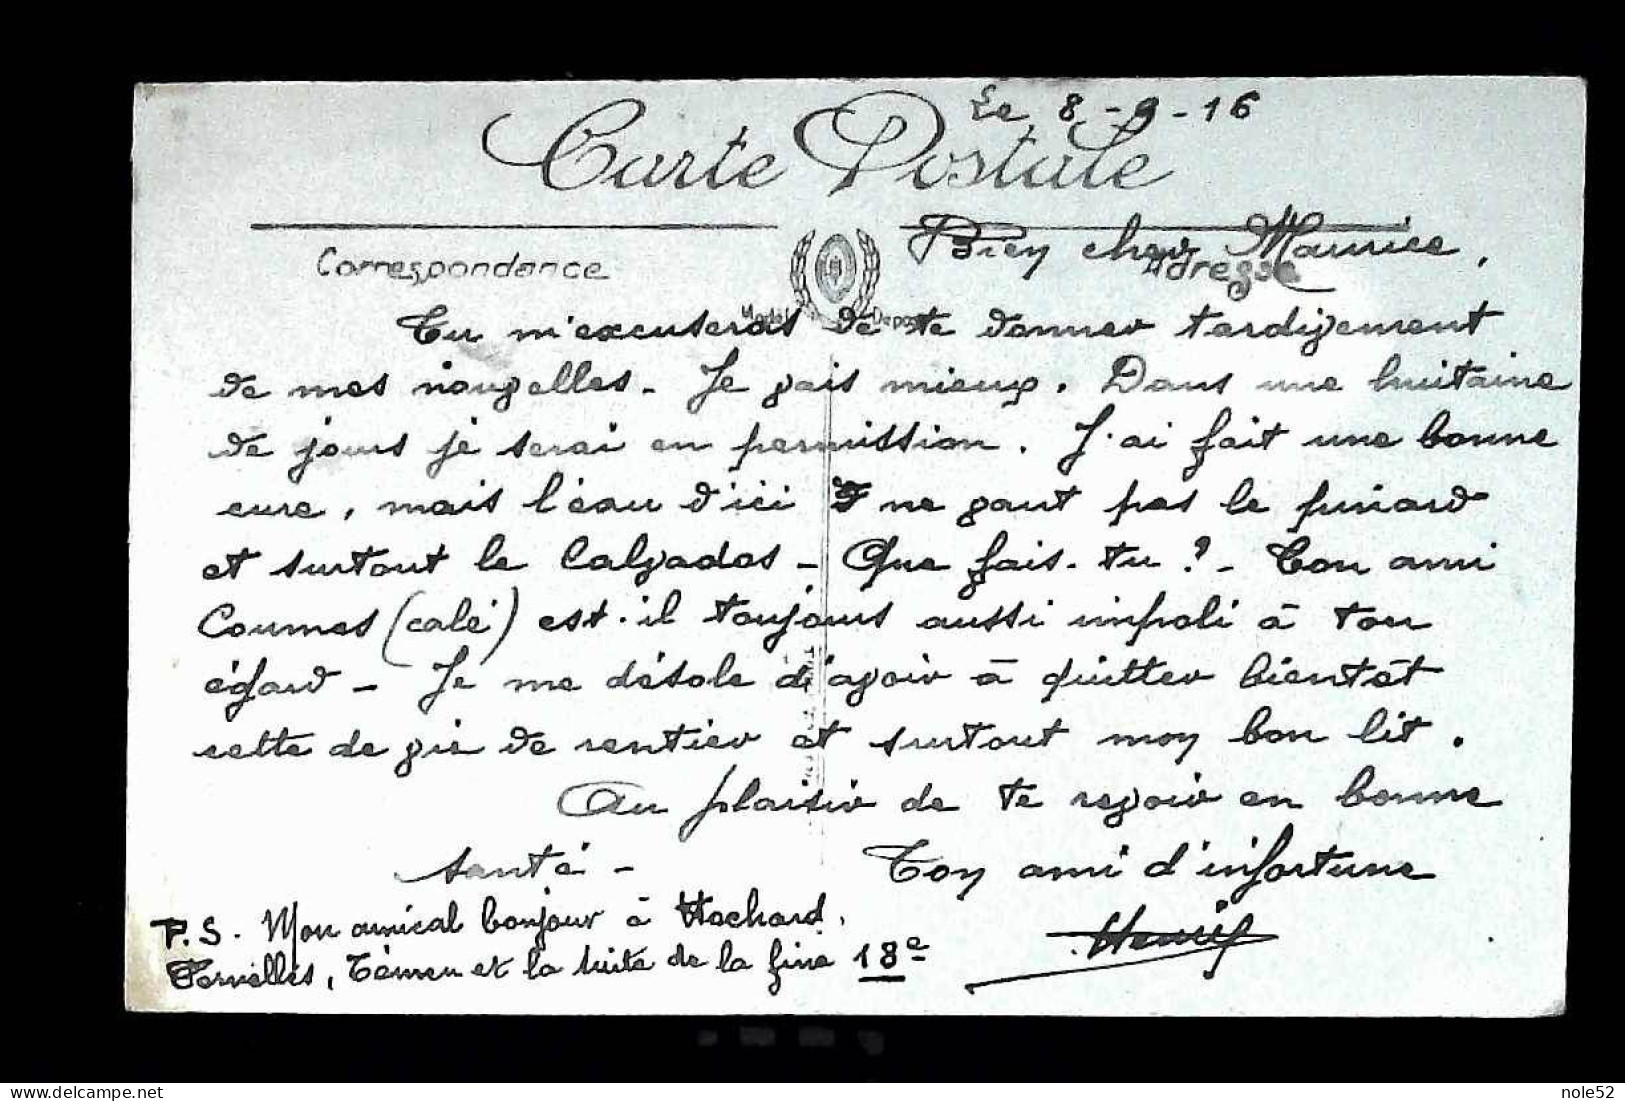 Le 8-9-16
Carte Postale
Bien cher Maurice,
Correspondance
Adresse
Modèle Déposé
Tu m'excuseras de te donner tardivement
de mes nouvelles - Je vais mieux. Dans une huitaine
de jours je serai en permission. J'ai fait une bonne
cure, mais l'eau d'ici ne vaut pas le pinard
et surtout le Calvados - Que fais-tu ? - Ton ami
Coumes (calé) est-il toujours aussi impoli à ton
égard - Je me désole d'avoir à quitter bientôt
cette de vie de rentier et surtout mon bon lit.
Au plaisir de te revoir en bonne
santé -
Ton ami d'infortune
P.S. Mon amical bonjour à Hochard,
et la suite de la fine 18e
Henri
delcampe.net
nole52